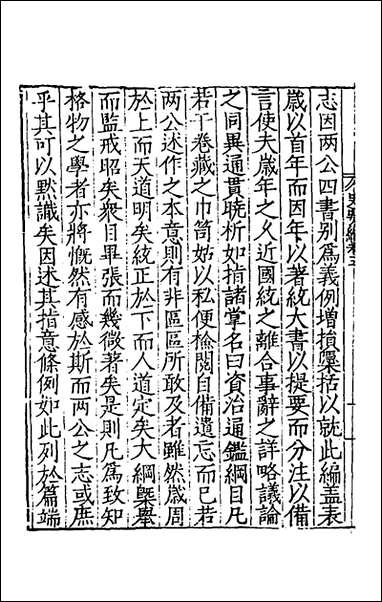 志因两公四書别爲義例增損櫽括以就此編盖表
歲以首年而因年以著統大書以提要而分注以備
言使夫歲年之久近國統之離合事辭之詳略議論
之同異通貫曉析如指諸掌名曰資治通鑑綱目凡
若干卷藏之巾笥姑以私便檢閱自備遺忘而已若
两公述作之本意則有非區區所敢及者雖然歲周
於上而天道明矣統正於下而人道定矣大綱槩舉
而監戒昭矣衆目畢張而幾微著矣是則凡爲致知
格物之學者亦將慨然有感於斯而两公之志或庶
乎其可以默識矣因述其指意條例如此列於篇端